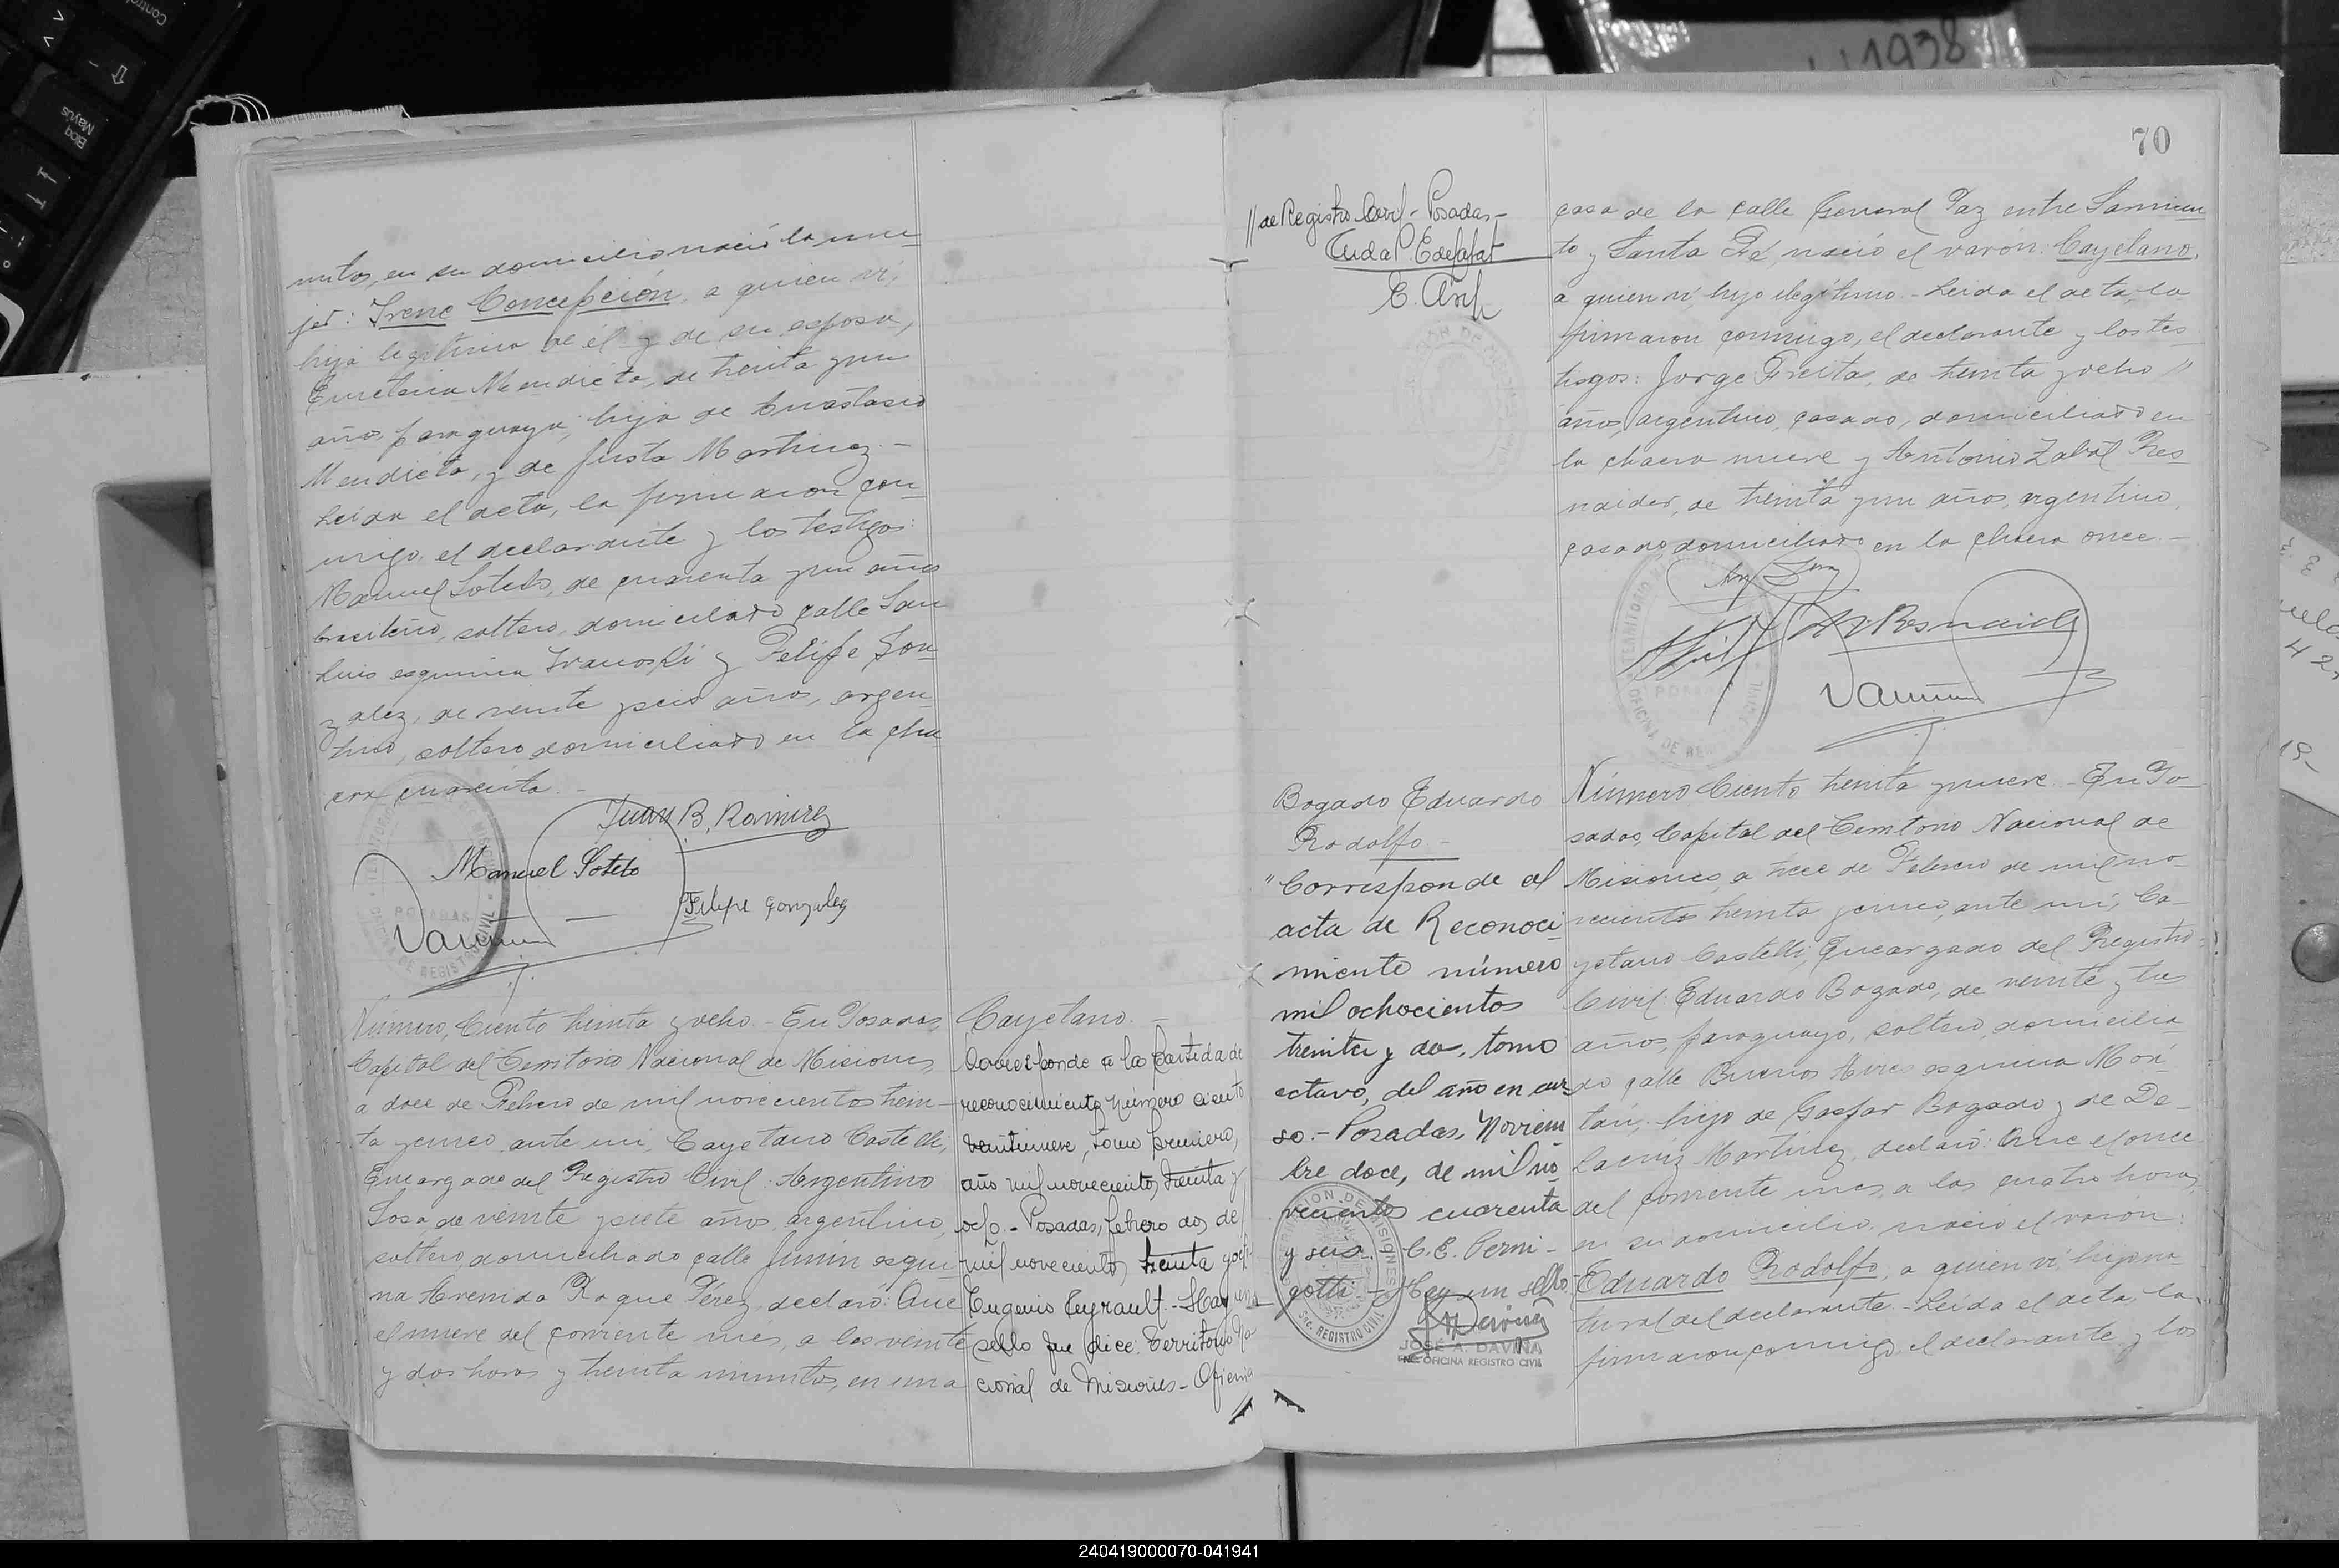 nutos, en su domicilio nació la mu-
jer: Irene Concepción, a quien ví,
hija legítima de él y de su esposa,
Emeteria Mendieta, de treinta y un
años, paraguaya, hija de Anastasio
Mendieta, y de Justa Martinez.-
Leída el acta, la firmaron con-
migo, el declarante y los testigos:
Manuel Sotelo, de cuarenta y un años
brasileño, soltero, domiciliado calle San
Luis esquina Ivanoski y Felipe Gon-
zalez, de veinte y seis años, argen-
tino, soltero domiciliado en la cha-
cra cuarenta.-
Juan B. Ramirez
Manuel Sotelo
Felipe Gonzalez
Número, Ciento treinta y ocho.- En Posadas,
Capital del Territorio Nacional de Misiones,
a doce de Febrero de mil novecientos trein-
ta y cinco, ante mi, Cayetano Castelli,
Encargado del Registro Civil: Argentino
Sosa de veinte y siete años, argentino,
soltero, domiciliado calle Junín esqui-
na Avenida Roque Pérez, declaró: Que
el nueve del corriente mes, a las veinte
y dos horas y treinta minutos, en una
Cayetano.-
Corresponde a la Partida de
reconocimiento número ciento
veintinueve, tomo primero,
año mil novecientos treinta y
ocho.- Posadas, febrero dos de
mil novecientos treinta y ocho
Eugenio Reyrault.- Hay un
sello que dice: Territorio Na-
cional de Misiones - Oficina
70
// de Registro Civil - Posadas -
casa de la calle General Paz entre Sarmien-
to y Santa Fé, nació el varón: Cayetano,
a quien ví, hijo ilegítimo.- Leida el acta, la
firmaron conmigo, el declarante y los tes-
tigos: Jorge Freita, de treinta y ocho //
años, argentino, casado, domiciliado en
la chacra nueve y Antonio Zabal Pres-
naider, de treinta y un años, argentino,
casado, domiciliado en la chacra once.-
Bogado Eduardo
Rodolfo.-
"Corresponde al
acta de Reconoci-
miento número
mil ochocientos
treinta y dos, tomo
octavo, del año en cur-
so.- Posadas, Noviem-
bre doce, de mil no-
vecientos cuarenta
y seis. C. E. Perni-
gotti - Hay un sello.
JOSÉ A. DAVIÑA
ENC. OFICINA REGISTRO CIVIL
Número Ciento treinta y nueve.- En Po-
sadas, Capital del Territorio Nacional de
Misiones, a trece de Febrero de mil no-
vecientos treinta y cinco, ante mi, Ca-
yetano Castelli, Encargado del Registro
Civil: Eduardo Bogado, de veinte y tres
años, paraguayo, soltero, domicilia-
do calle Buenos Aires esquina Mon-
tan, hijo de Gaspar Bogado y de De-
lacruz Martinez, declaró: Que el once
del corriente mes, a las cuatro horas,
en su domicilio, nació el varón:
Eduardo Rodolfo, a quien ví, hijo na-
tural del declarante.- Leida el acta, la
firmaron conmigo, el declarante y los
1938
240419000070-041941